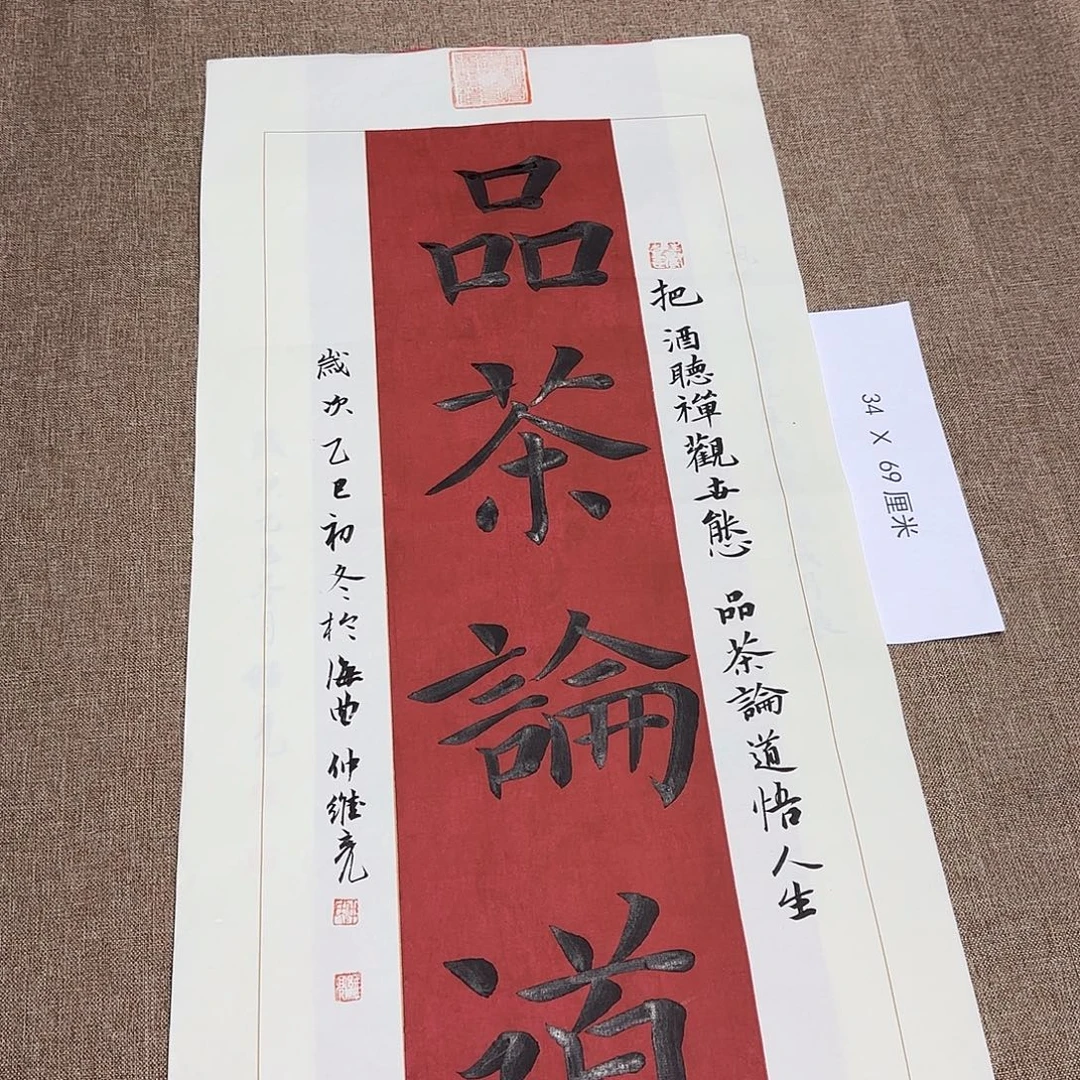 品茶論道
把酒聽禪觀世態 品茶論道悟人生
歲次乙巳初冬於海曲仲維亮
34 X 69 厘米